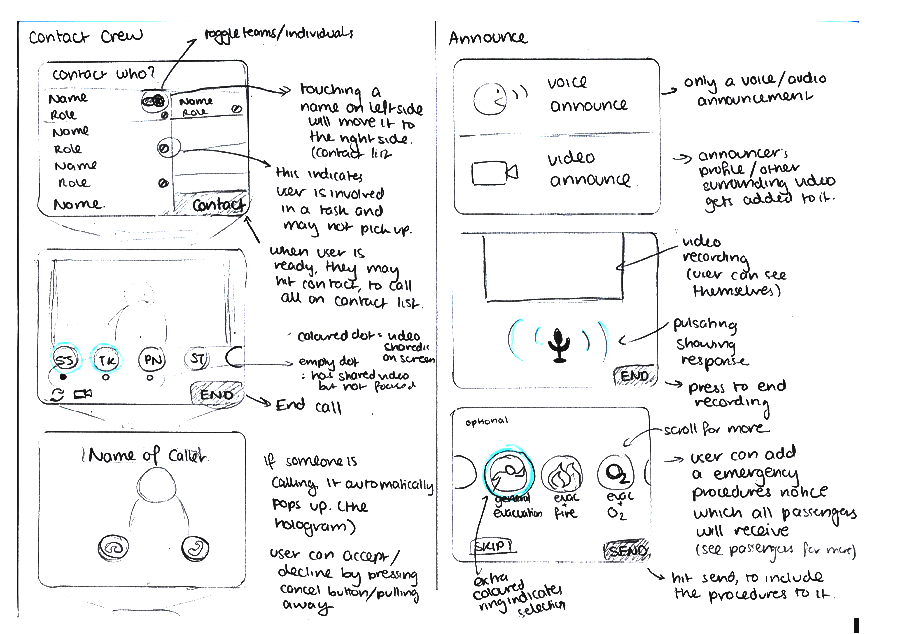 Contact Crew
toggle teams/individuals
Contact who?
Name
Role
Name
Role
Name
Role
Name
Role
Name.
Contact
touching a
name on left side
will move it to
the right side.
(contact list
this indicates
user is involved
in a task and
may not pick up.
when user is
ready, they may
hit contact, to call
all on contact list.
SS
TK
PN
ST
END
coloured dot = video
shared
on screen
empty dot
: has shared video
but not focused
End call
Name of Caller.
if someone is
calling it automatically
pops up. (the
hologram)
user can accept/
decline by pressing
cancel button/pulling
away
Announce
voice
announce
video
announce
only a voice/audio
announcement
announcer's
profile/other
surrounding video
gets added to it.
video
recording
(user can see
themselves)
pulsating
showing
response
END
press to end
recording
optional
scroll for more
general
evacuation
evac
+
fire
O2
evac
+
O2
SKIP
SEND
user can add
a emergency
procedures notice
which all passengers
will receive
(see passengers for more)
extra
coloured
ring indicates
selection
hit send, to include
the procedures to it.